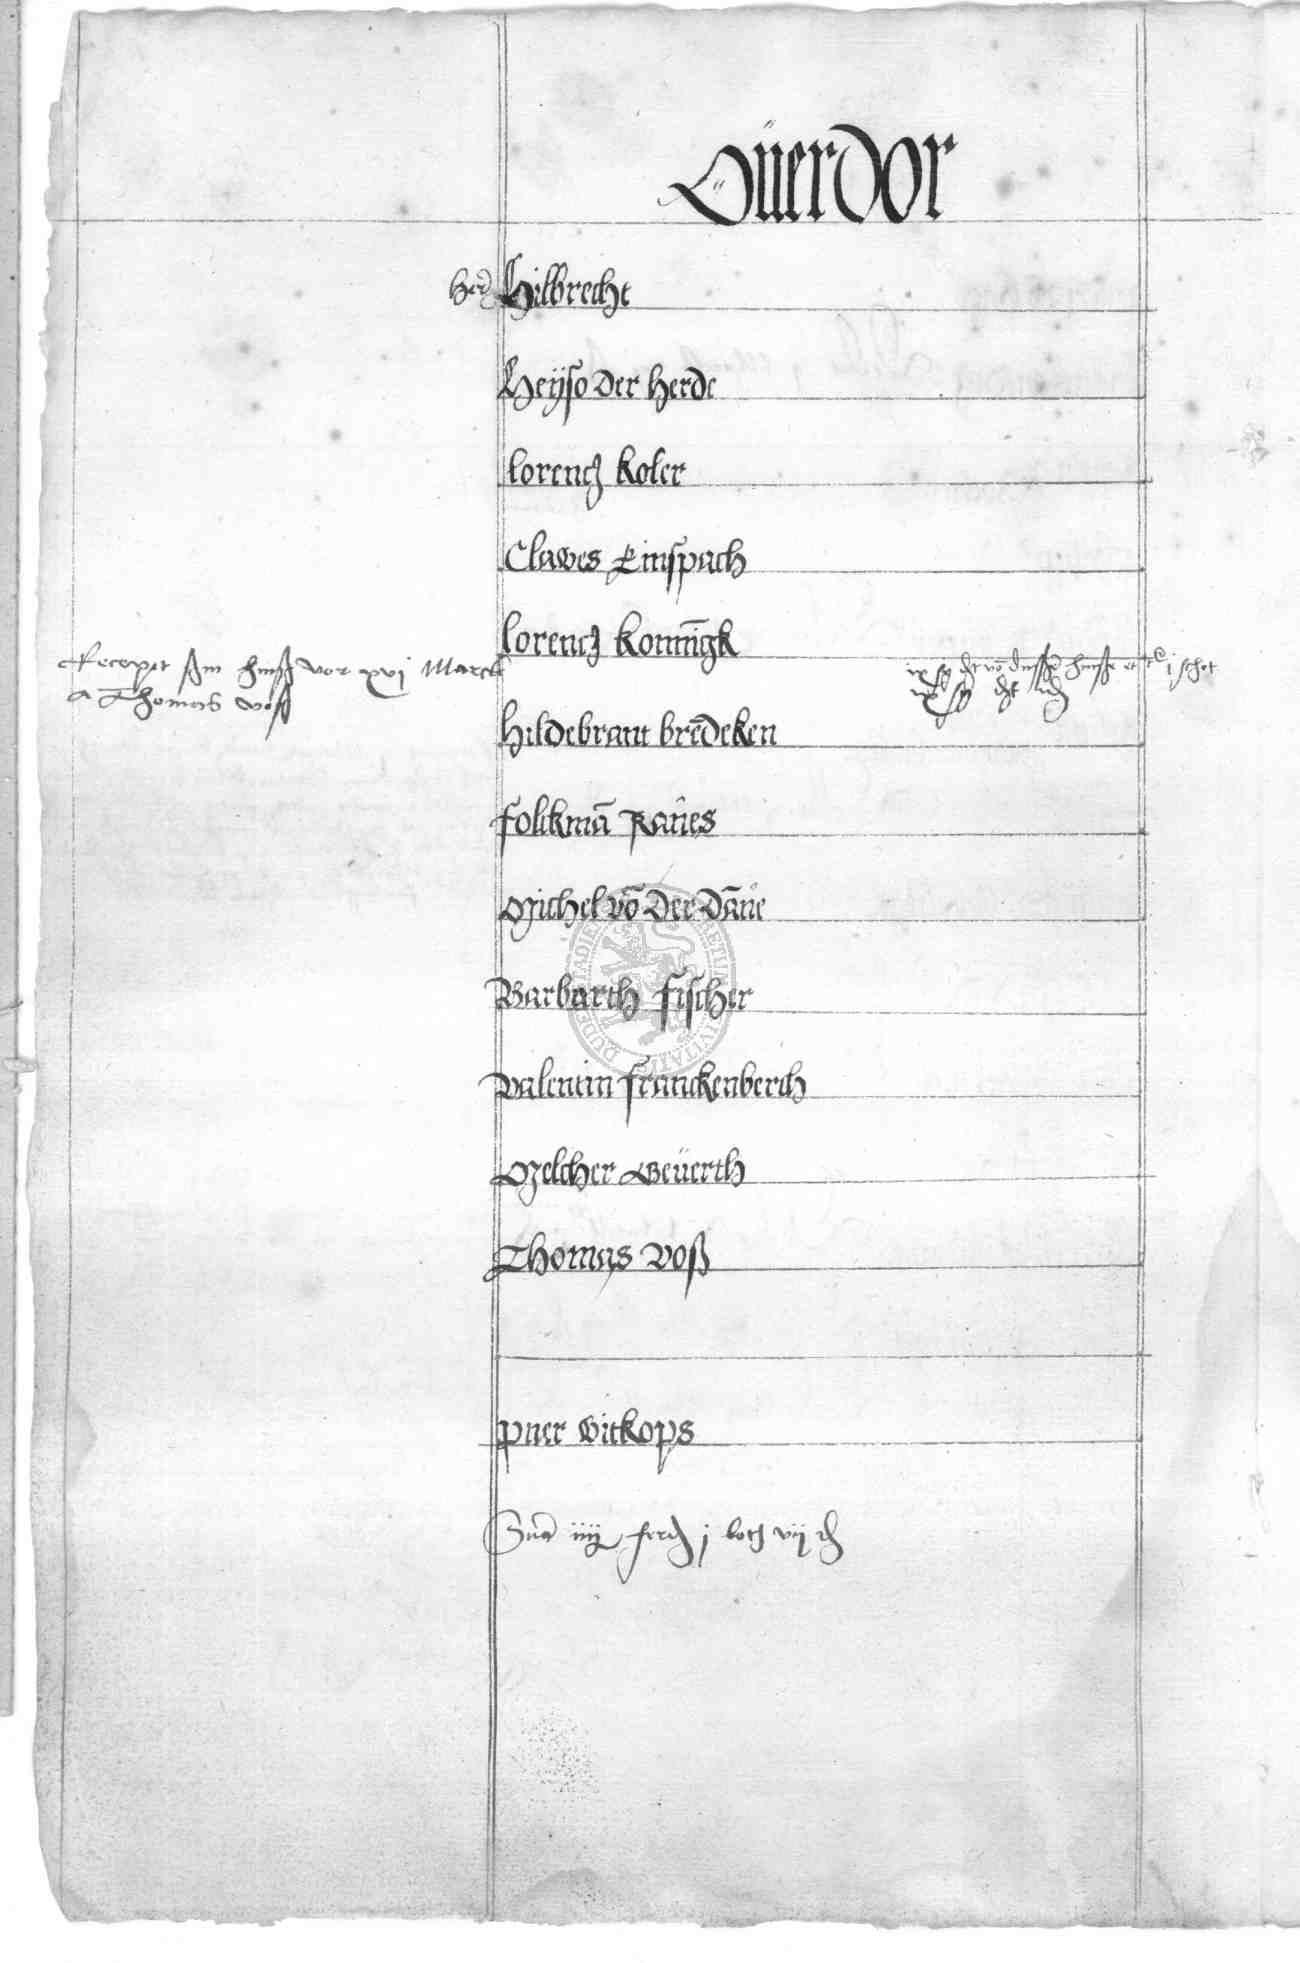 Ouerdor
her Hilbrecht
Heyso der herde
lorencz koler
Clawes Einspach
lorencz konnigk
Recepit huß vor xvj Marck
a Thomas voß
von huße j schot
hildebrant bredeken
folckmā Raues
Michel vō der Dane
Barbarth fischer
Valentin franckenberch
Melcher Geuerth
Thomas voß
puer witkops
Sūa iiij ferd j lot vij